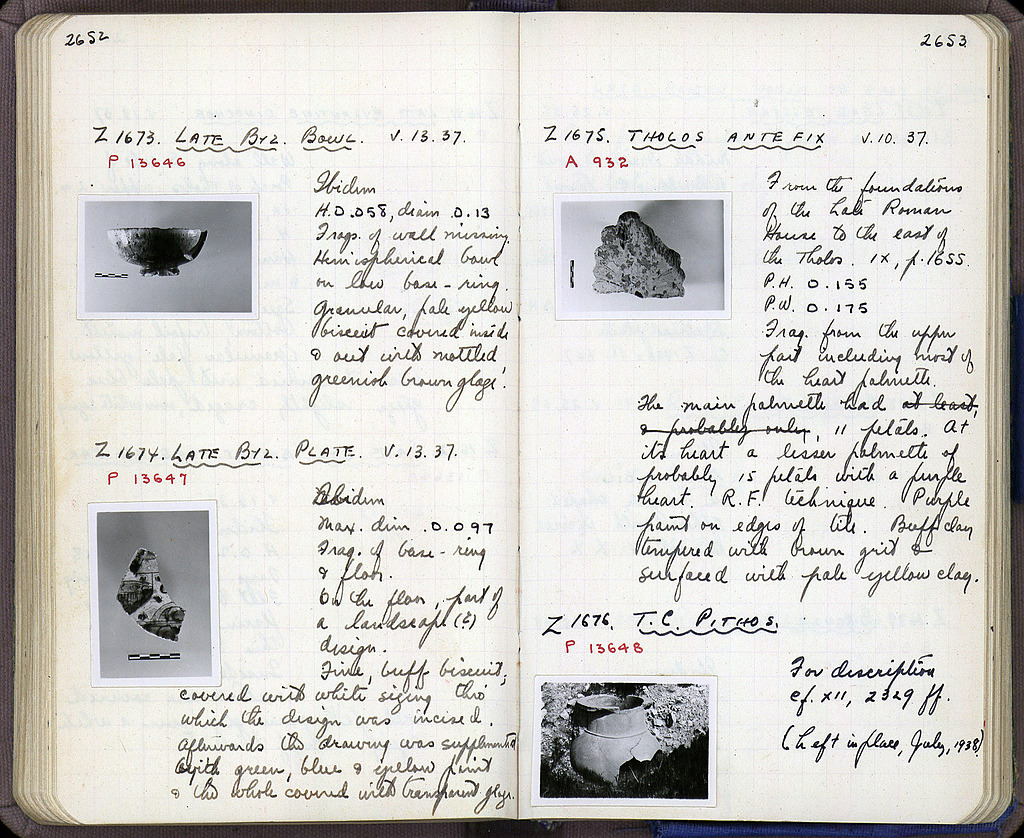 2652
Z 1673. LATE BYZ. BOWL. V.13.37.
P 13646
Ibidem
H. 0.058, diam 0.13
Frags. of wall missing.
Hemispherical bowl
on low base-ring.
Granular, pale yellow
biscuit covered inside
& out with mottled
greenish brown glaze.
Z 1674. LATE BYZ. PLATE. V.13.37.
P 13647
Ibidem
Max. dim 0.097
Frag. of base-ring
& floor.
On the floor, part of
a landscape (?)
design.
Fine, buff biscuit,
covered with white sizing thro
which the design was incised.
Afterwards the drawing was supplemented
with green, blue & yellow paint
& the whole covered with transparent glaze.
2653
Z 1675. THOLOS ANTEFIX V.10.37.
A 932
From the foundations
of the Late Roman
House to the east of
the Tholos. IX, p.1655.
P.H. 0.155
P.W. 0.175
Frag. from the upper
part including most of
the heart palmette.
The main palmette had at least,
& probably only, 11 petals. At
its heart a lesser palmette of
probably 15 petals with a purple
heart. R.F. technique. Purple
paint on edges of tile. Buff clay
tempered with brown grit &
surfaced with pale yellow clay.
Z 1676. T.C. PITHOS.
P 13648
For description
cf. XII, 2329 ff.
(Left in place, July, 1938)